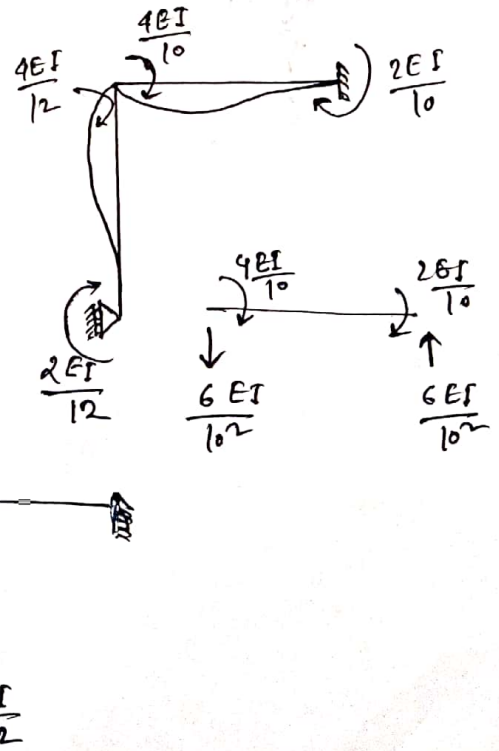 4EI
10
4EI
12
2EI
10
2EI
12
4EI
10
2EI
10
6 EI
10²
6 EI
10²
I
2